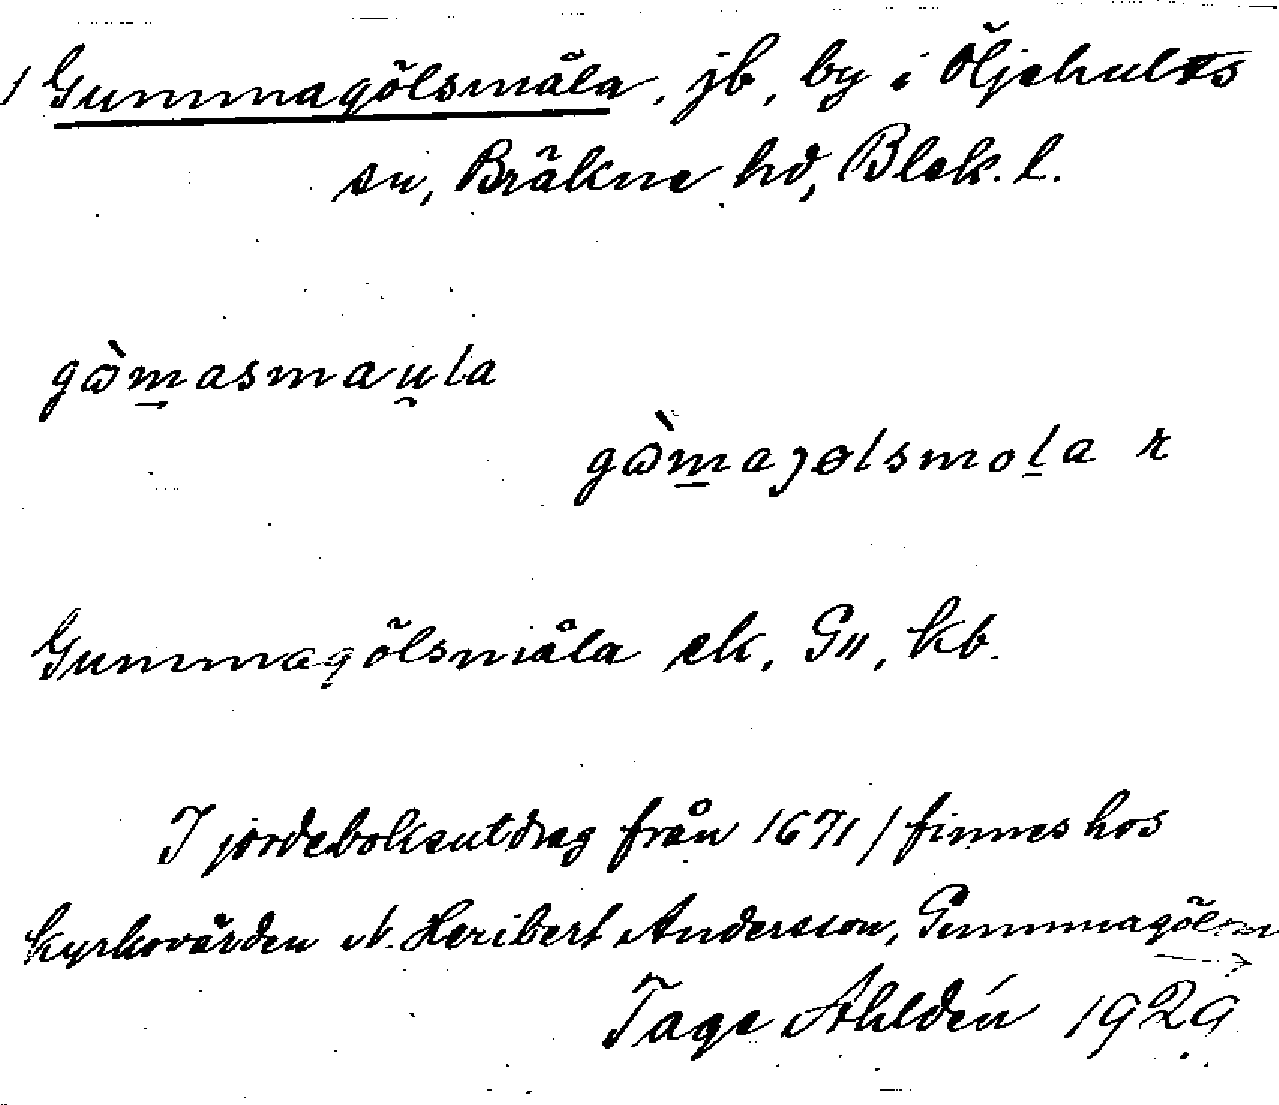 1 Gummagölsmåla, jb, by i Öljehults
sn, Bräkne hd, Blek. l.
gɷ̀m̲asmau̯la
gɷ̀m̲aɟølsmol̲a r
Gummagölsmåla ek, G", kb.
I jordeboksutdrag från 1671 / finnes hos
kyrkovärden N. Heribert Andersson, Gummagölsm
Tage Ahldén 1929